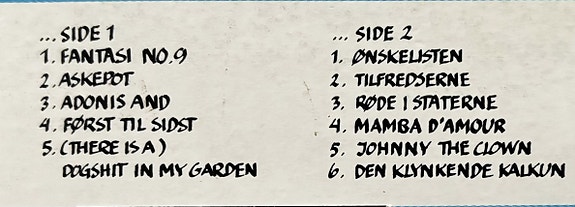 ...SIDE 1
1. FANTASI NO.9
2. ASKEPOT
3. ADONIS AND
4. FØRST TIL SIDST
5. (THERE IS A)
DOGSHIT IN MY GARDEN
... SIDE 2
1. ØNSKELISTEN
2. TILFREDSERNE
3. RØDE I STATERNE
4. MAMBA D'AMOUR
5. JOHNNY THE CLOWN
6. DEN KLYNKENDE KALKUN